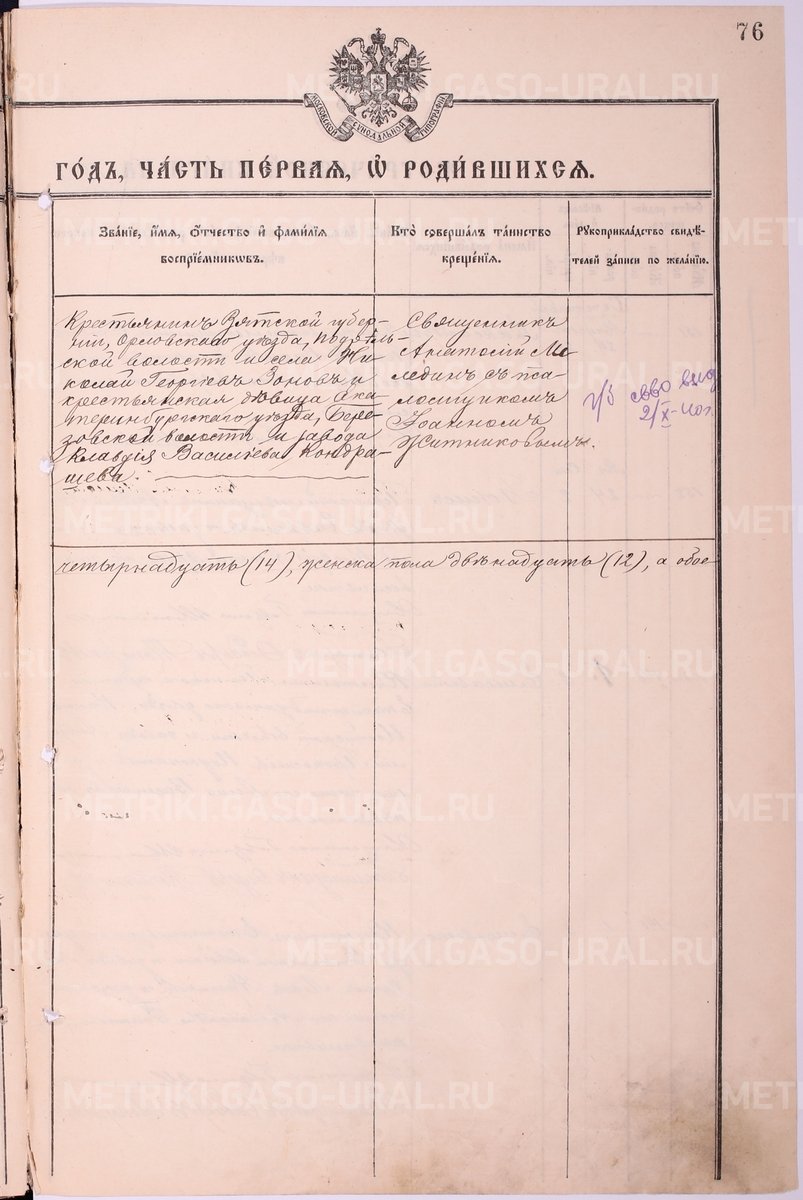 76
МОСКОВСКОЙ СѴНОДАЛЬНОЙ ТИПОГРАФІИ
ГО́ДЪ, ЧА́СТЬ ПЕ́РВАЯ, Ѡ҆ РОДИ́ВШИХСЯ.
Зва́нїе, и҆́мѧ, ѻ҆́тчество и҆ фами́лїѧ
воспрїе́мникѡвъ.
Кто̀ соверша́лъ та́инство
креще́нїѧ.
Рꙋкоприкла́дство свидѣ́-
телей за́писи по жела́нїю.
Крестьянинъ Вятской губер-
ніи, Орловскаго уѣзда,
ской волости и села Ни-
колай Георгіевъ Зоновъ и
крестьянская дѣвица Ека-
теринбургскаго уѣзда, Бере-
зовской волости и завода
Клавдія Васильева Кондра-
шева.
Священникъ
Анатолій Ме-
лединъ съ пса-
ломщикомъ
Іоанномъ
Житниковымъ.
четырнадцать (14), женска пола двѣнадцать (12), а обое
METRIKI.GASO-URAL.RU